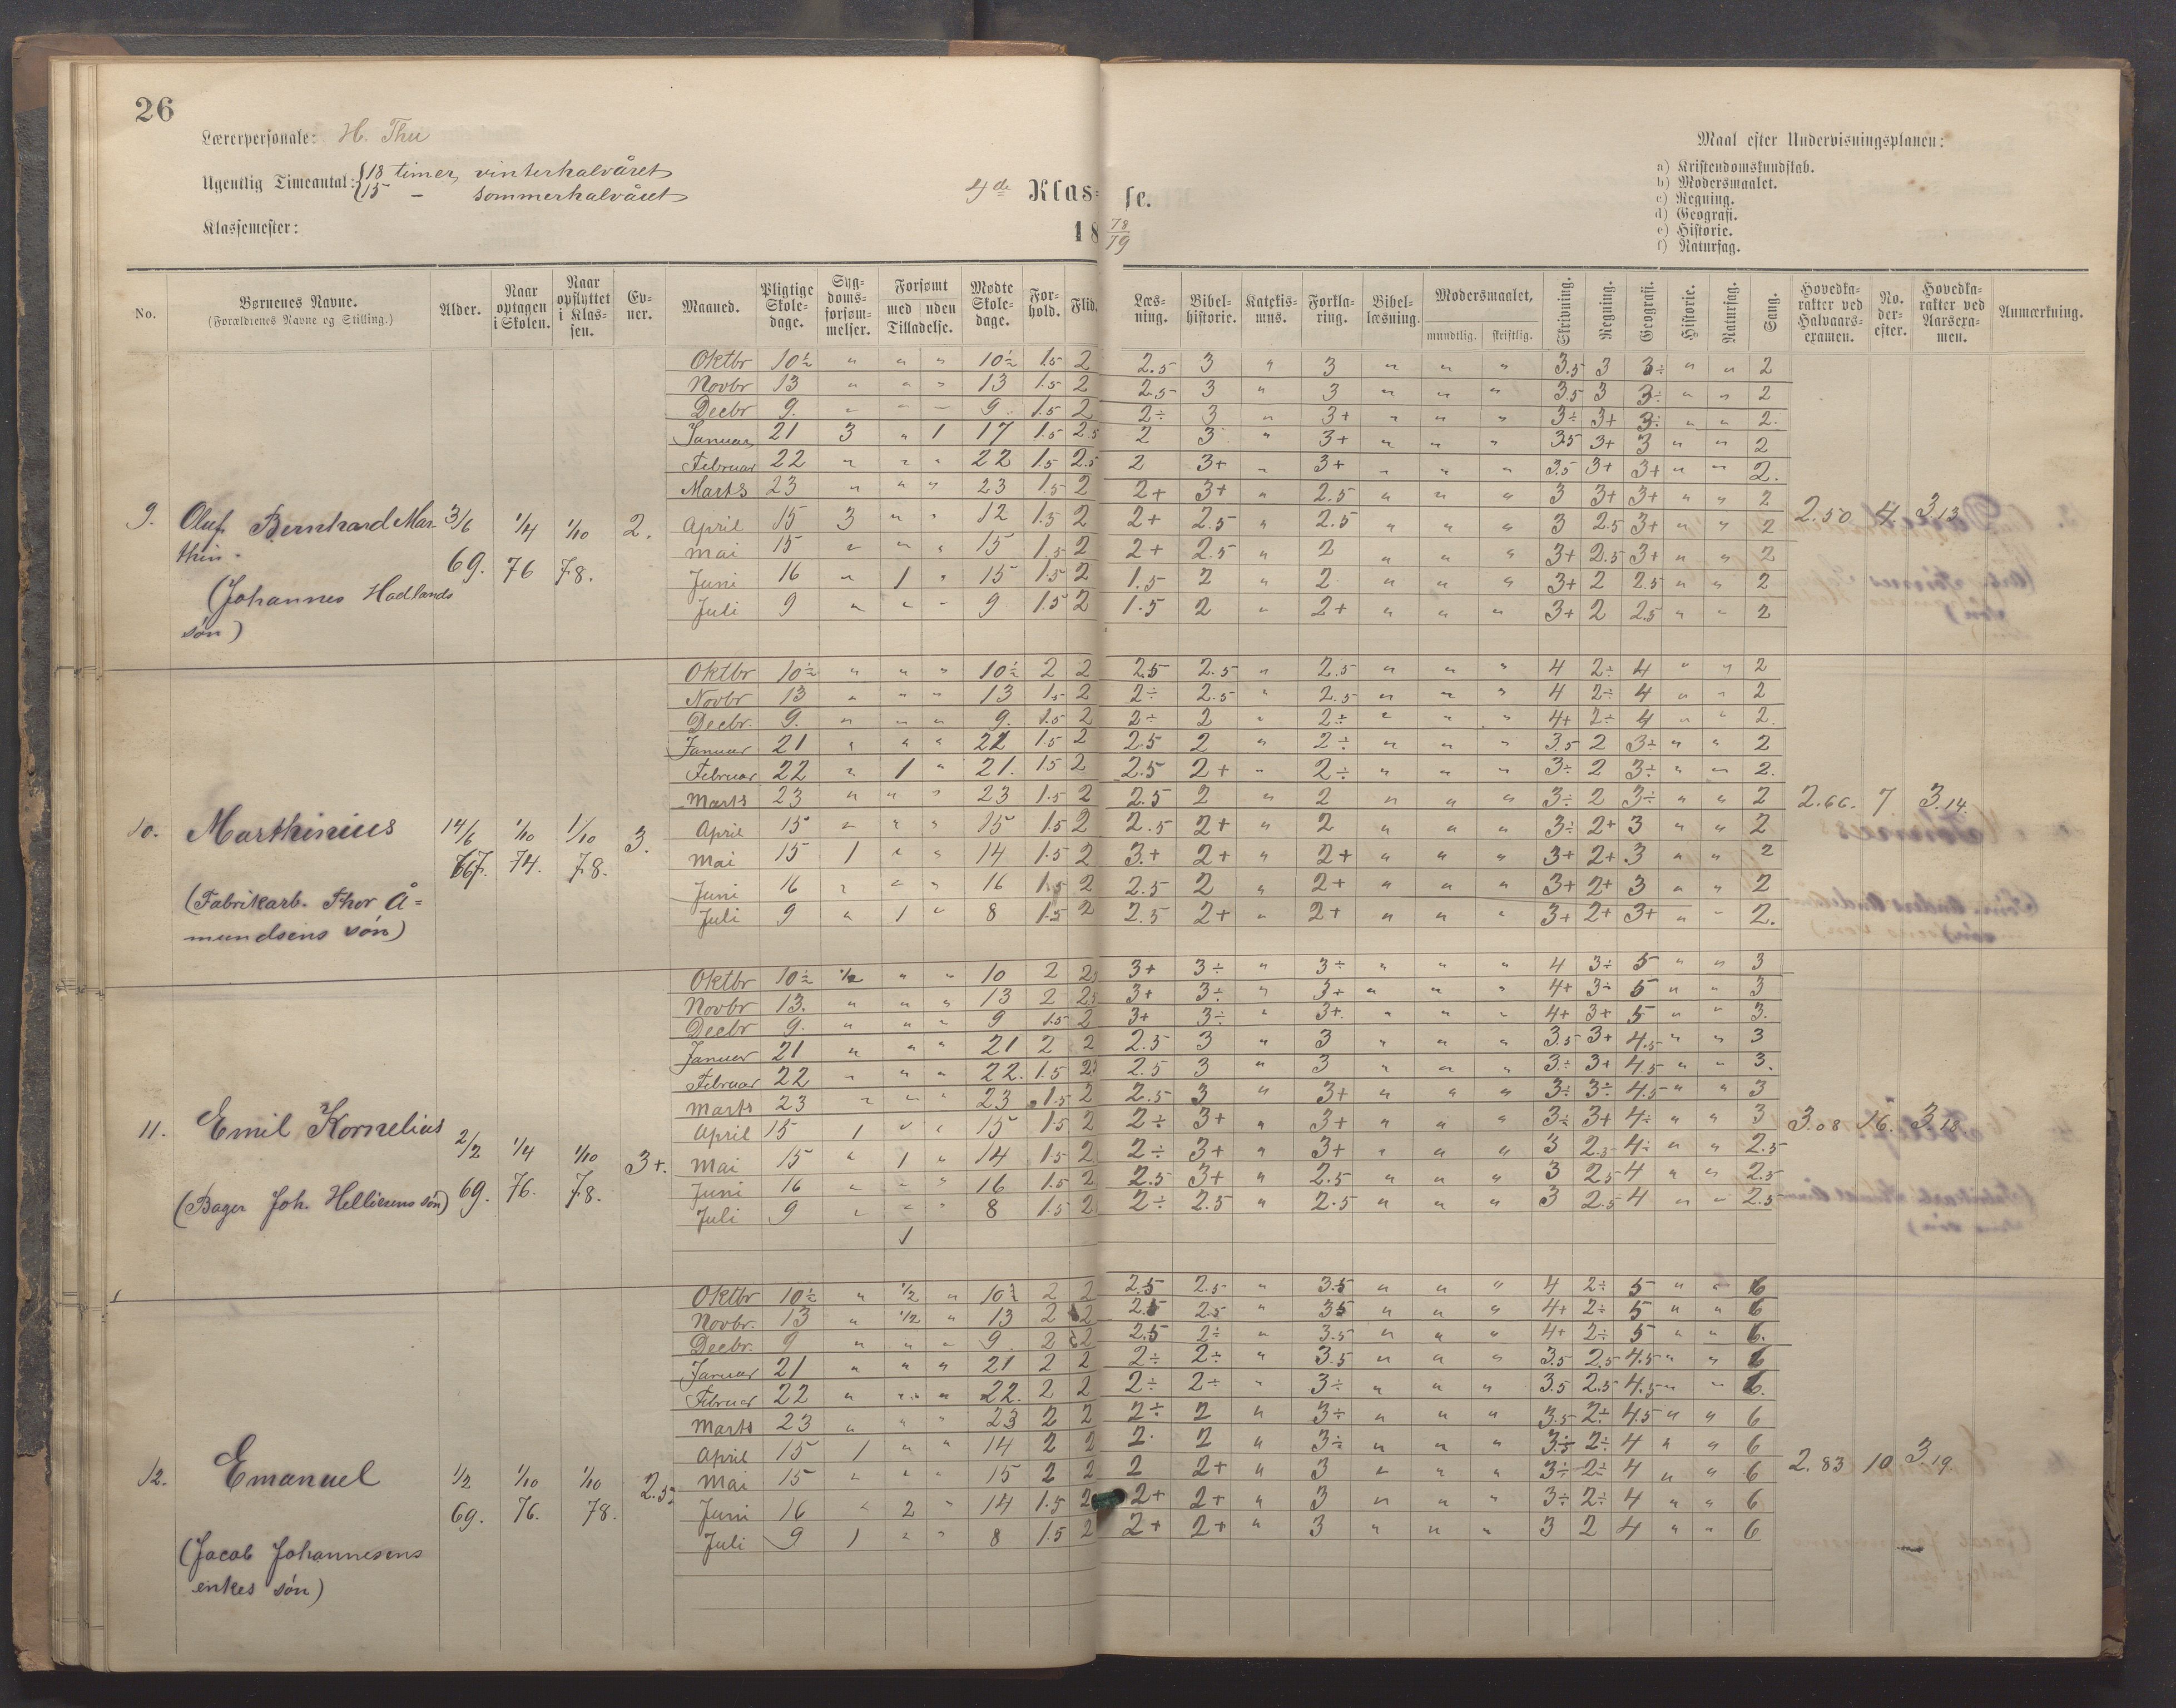 26
Lærerpersonale: H. Thu
Ugentlig Timeantal: {18 timer, vinterhalvåret
15 — sommerhalvåret
Klassemester:
4de Klasse.
18 78/79
Maal efter Undervisningsplanen:
a) Kristendomskundskab.
b) Modersmaalet.
c) Regning.
d) Geografi.
e) Historie.
f) Naturfag.
No. | Børnenes Navne. (Forældrenes Navne og Stilling.) | Alder. | Naar optagen i Skolen. | Naar opflyttet i Klassen. | Evner. | Maaned. | Pligtige Skoledage. | Sygdomsforsømmelser. | Forsømt med Tilladelse. | uden Tilladelse. | Mødte Skoledage. | Forhold. | Flid. | Læsning. | Bibelhistorie. | Katekismus. | Forklaring. | Bibellæsning. | Modersmaalet, mundtlig. | skriftlig. | Skrivning. | Regning. | Geografi. | Historie. | Naturfag. | Sang. | Hovedkarakter ved Halvaarsexamen. | No. derefter. | Hovedkarakter ved Aarsexamen. | Anmærkning.
9. Oluf Bernhard Marthin. (Johannes Hadlands søn) 3/6 69. 1/4 76 1/10 78. 2. 2.50 4. 3.13
Oktbr 10½ " " " 10½ 1.5 2 2.5 3 " 3 " " " 3.5 3 3÷ " " 2
Novbr 13 " " " 13 1.5 2 2.5 3 " 3 " " " 3.5 3 3÷ " " 2
Decbr 9. " " " 9. 1.5 2 2÷ 3 " 3+ " " " 3÷ 3+ 3÷ " " 2.
Januar 21 3 " 1 17 1.5 2.5 2 3 " 3+ " " " 3.5 3+ 3 " " 2
Februar 22 " " " 22 1.5 2.5 2 3+ " 3+ " " " 3.5 3+ 3+ " " 2.
Marts 23 " " " 23 1.5 2 2+ 3+ " 2.5 " " " 3 3+ 3+ " " 2
April 15 3 " " 12 1.5 2 2+ 2.5 " 2.5 " " " 3 2.5 3+ " " 2
Mai 15 " " " 15 1.5 2 2+ 2.5 " 2 " " " 3+ 2.5 3+ " " 2
Juni 16 " 1 " 15 1.5 2 1.5 2 " 2 " " " 3+ 2 2.5 " " 2
Juli 9 " " " 9 1.5 2 1.5 2 " 2+ " " " 3+ 2 2.5 " " 2
10. Marthinius (Fabrikarb. Thor Åmundsens søn) 14/6 67. 1/10 74. 1/10 78. 3. 2.66. 7 3.14.
Oktbr 10½ " " " 10½ 2 2 2.5 2.5 " 2.5 " " " 4 2÷ 4 " " 2
Novbr 13 " " " 13 1.5 2 2÷ 2.5 " 2.5 " " " 4 2÷ 4 " " 2
Decbr. 9. " " " 9. 1.5 2 2÷ 2 " 2÷ " " " 4+ 2÷ 4 " " 2.
Januar 21 " " " 22 1.5 2 2.5 2 " 2÷ " " " 3.5 2 3÷ " " 2
Februar 22 " 1 " 21. 1.5 2 2.5 2+ " 2÷ " " " 3÷ 2 3÷ " " 2.
Marts 23 " " " 23 1.5 2 2.5 2 " 2 " " " 3÷ 2 3÷ " " 2
April 15 " " " 15 1.5 2 2.5 2+ " 2 " " " 3÷ 2+ 3 " " 2
Mai 15 1 " " 14 1.5 2 3.+ 2+ " 2+ " " " 3+ 2+ 3 " " 2
Juni 16 " " " 16 1.5 2 2.5 2 " 2+ " " " 3+ 2+ 3 " " 2
Juli 9 " 1 " 8 1.5 2 2.5 2+ " 2+ " " " 3+ 2+ 3+ " " 2.
11. Emil Kornelius (Bager Joh. Helliesens søn) 2/2 69. 1/4 76. 1/10 78. 3+. 3.08 16. 3.18.
Oktbr 10½ 1/2 " " 10 2 2.5 3+ 3÷ " 3÷ " " " 4 3÷ 5 " " 3
Novbr 13. " " " 13 2 2.5 3+ 3÷ " 3+ " " " 4+ 3÷ 5 " " 3
Decbr 9. " " " 9 1.5 2 3+ 3÷ " 3+. " " " 4+ 3+ 5 " " 3.
Januar 21 " " " 21 2 2 2.5 3 " 3 " " " 3.5 3+ 4.5 " " 3
Februar 22 " " " 22. 1.5 2.5 2.5 3 " 3 " " " 3÷ 3+ 4.5 " " 3.
Marts 23 " " " 23 1.5 2 2.5 3 " 3+ " " " 3÷ 3÷ 4.5 " " 3
April 15 1 " " 15 1.5 2 2÷ 3+ " 3+ " " " 3÷ 3+ 4÷ " " 3
Mai 15 " 1 " 14 1.5 2 2÷ 3+ " 3+ " " " 3 2.5 4÷ " " 2.5
Juni 16 " " " 16 1.5 2 2.5 3+ " 2.5 " " " 3 2.5 4 " " 2.5
Juli 9 " " " 8 1.5 2 2÷ 2.5 " 2.5 " " " 3 2.5 4 " " 2.5
1
12. Emanuel (Jacob Johannesens enkes søn) 1/2 69. 1/10 76. 1/10 78. 2.5. 2.83 10 3.19.
Oktbr 10½ " 1/2 " 10½ 2 2 2.5 2.5 " 3.5 " " " 4 2÷ 5 " " 6
Novbr. 13 " 1/2 " 13 2 2 2.5 2.5 " 3.5 " " " 4+ 2÷ 5 " " 6
Decbr. 9 " " " 9. 2 2 2.5 2÷ " 3.5 " " " 4+ 2÷ 5 " " 6.
Januar 21 " " " 21 2 2 2÷ 2÷ " 3.5 " " " 3.5 2.5 4.5 " " 6
Februar 22 " " " 22. 2 2 2÷ 2÷ " 3÷ " " " 3.5 2.5 4.5 " " 6.
Marts 23 " " " 23 2 2 2÷ 2 " 3÷ " " " 3.5 2÷ 4.5 " " 6
April 15 1 " " 14 2 2 2. 2 " 3÷ " " " 3÷ 2÷ 4 " " 6
Mai 15 " " " 15 2 2 2 2+ " 3 " " " 3÷ 2÷ 4 " " 6
Juni 16 " 2 " 14 1.5 2 2+ 2+ " 3 " " " 3÷ 2÷ 4 " " 6
Juli 9 1 " " 8 1.5 2 2+ 2+ " 3 " " " 3 2 4 " " 6